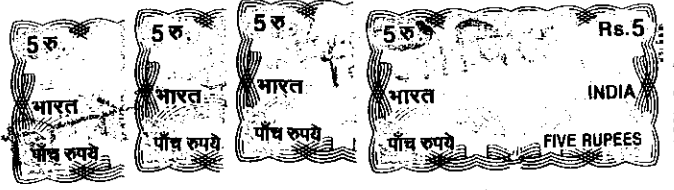 5 रु.
भारत
पाँच रुपये
5 रु.
भारत
पाँच रुपये
5 रु.
भारत
पाँच रुपये
5 रु. Rs. 5
भारत INDIA
पाँच रुपये FIVE RUPEES